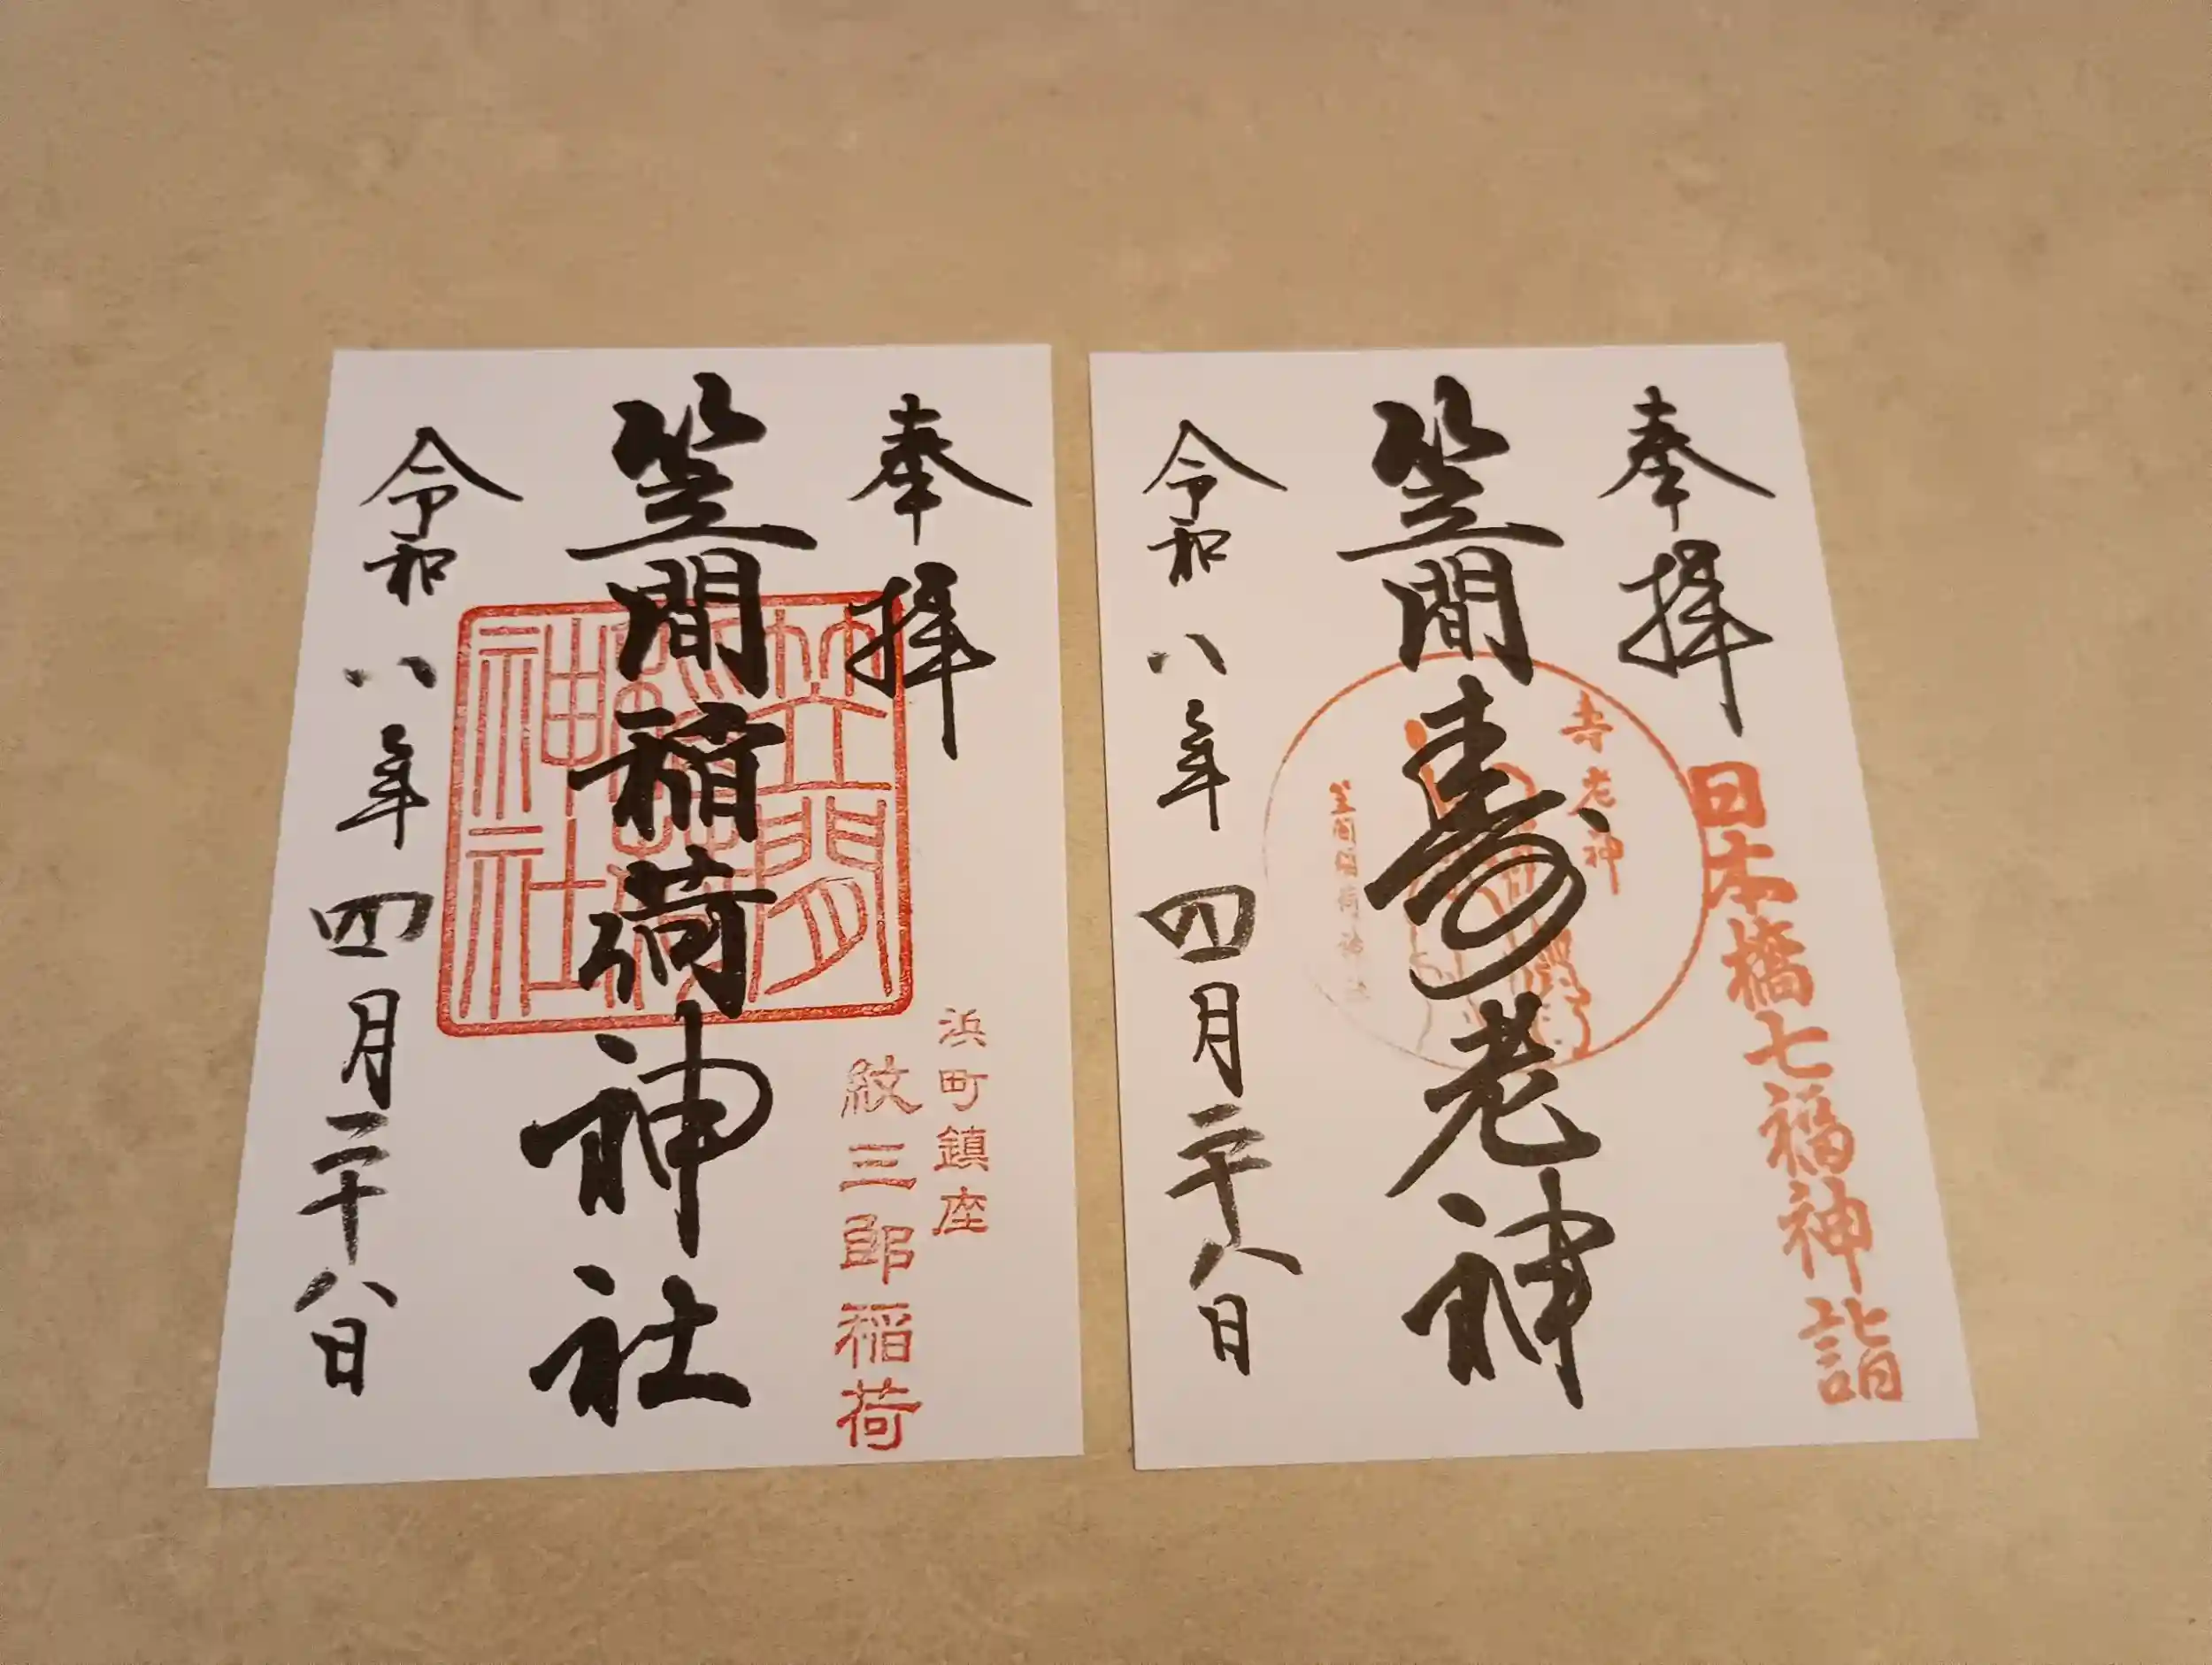 奉拝
笠間稲荷神社
令和八年四月二十八日
笠間稲荷神社
浜町鎮座
紋三郎稲荷
奉拝
笠間寿老神
令和八年四月二十八日
寿老神
笠間稲荷神社
日本橋七福神詣